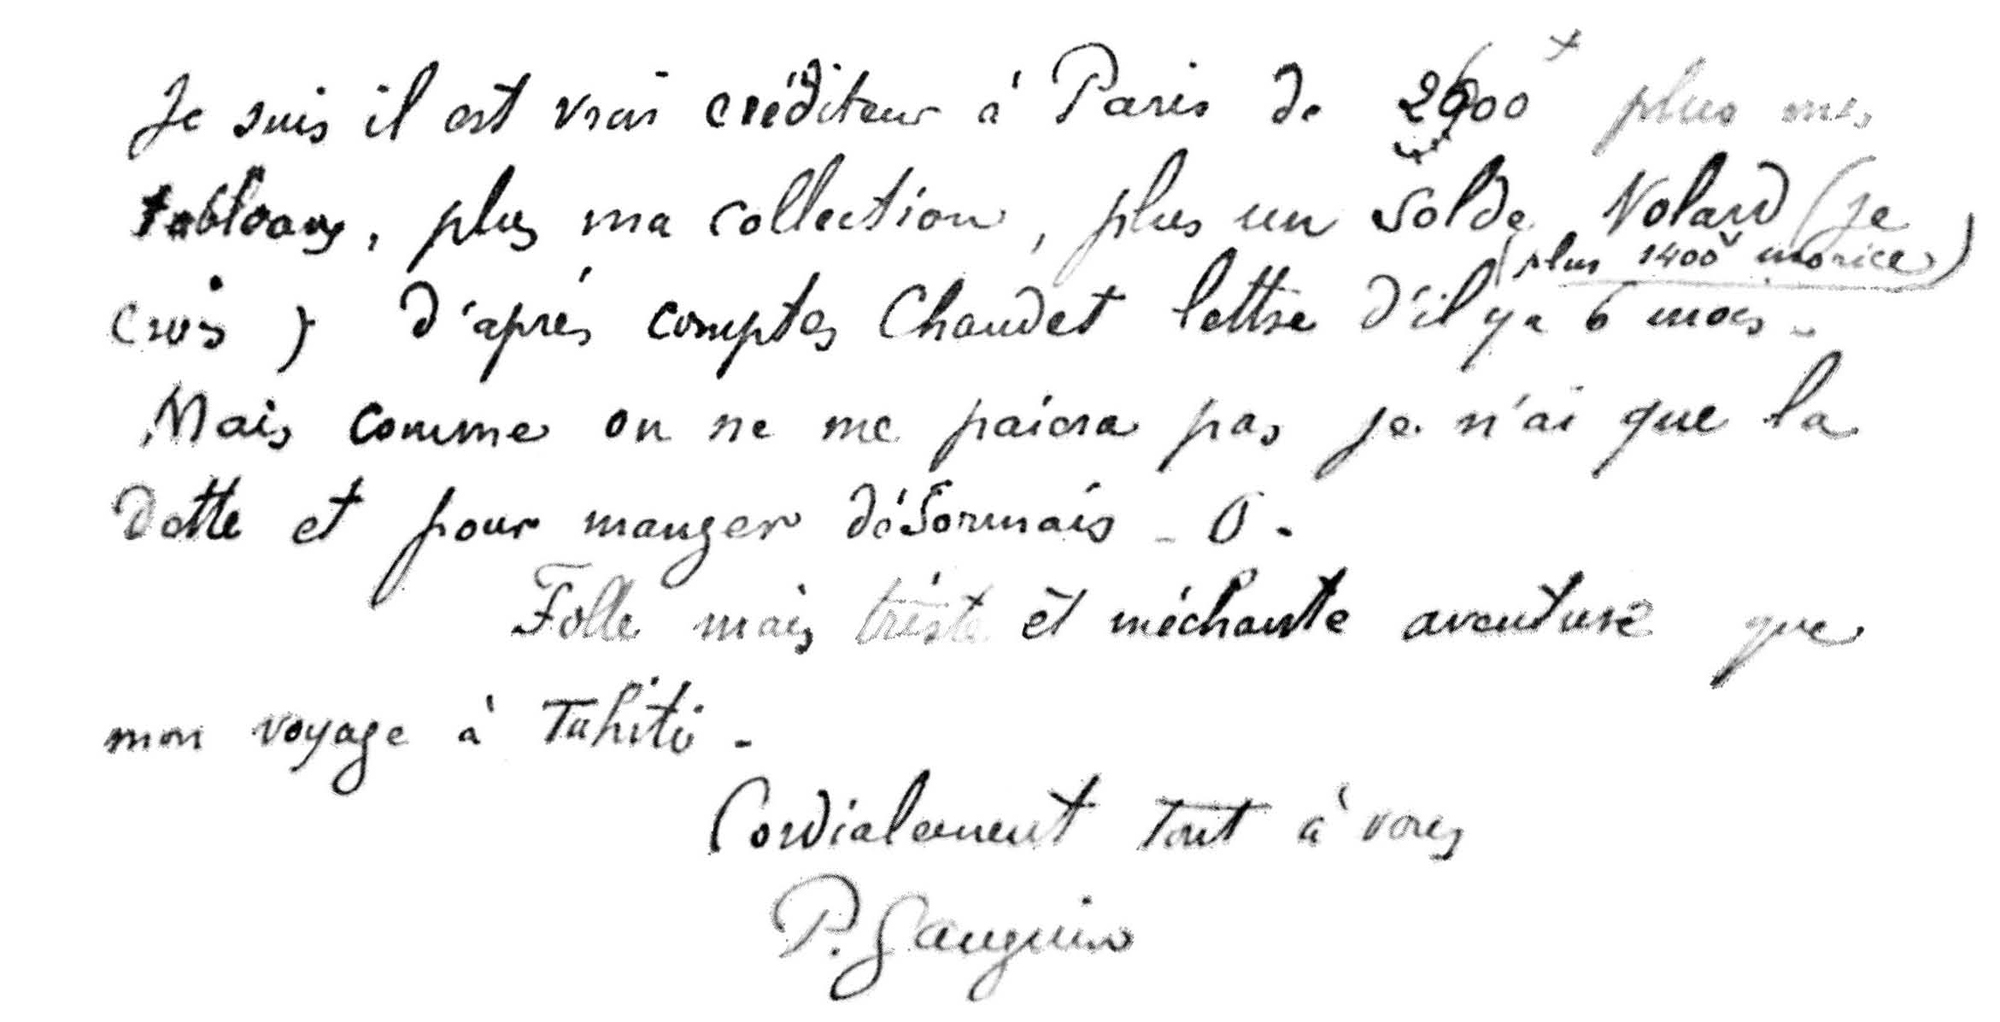 Je suis il est vrai créditeur à Paris de 2600ᶠ plus mes
tableaux, plus ma collection, plus un Solde Volard (je
(plus 1400ᶠ morice)
crois) d'après comptes Chaudet lettre d'il y a 6 mois -
Mais comme on ne me paiera pas je n'ai que la
Dette et pour manger désormais - 0 -
Folle mais triste et méchante aventure que
mon voyage à Tahiti -
Cordialement tout à vous
P. Gauguin